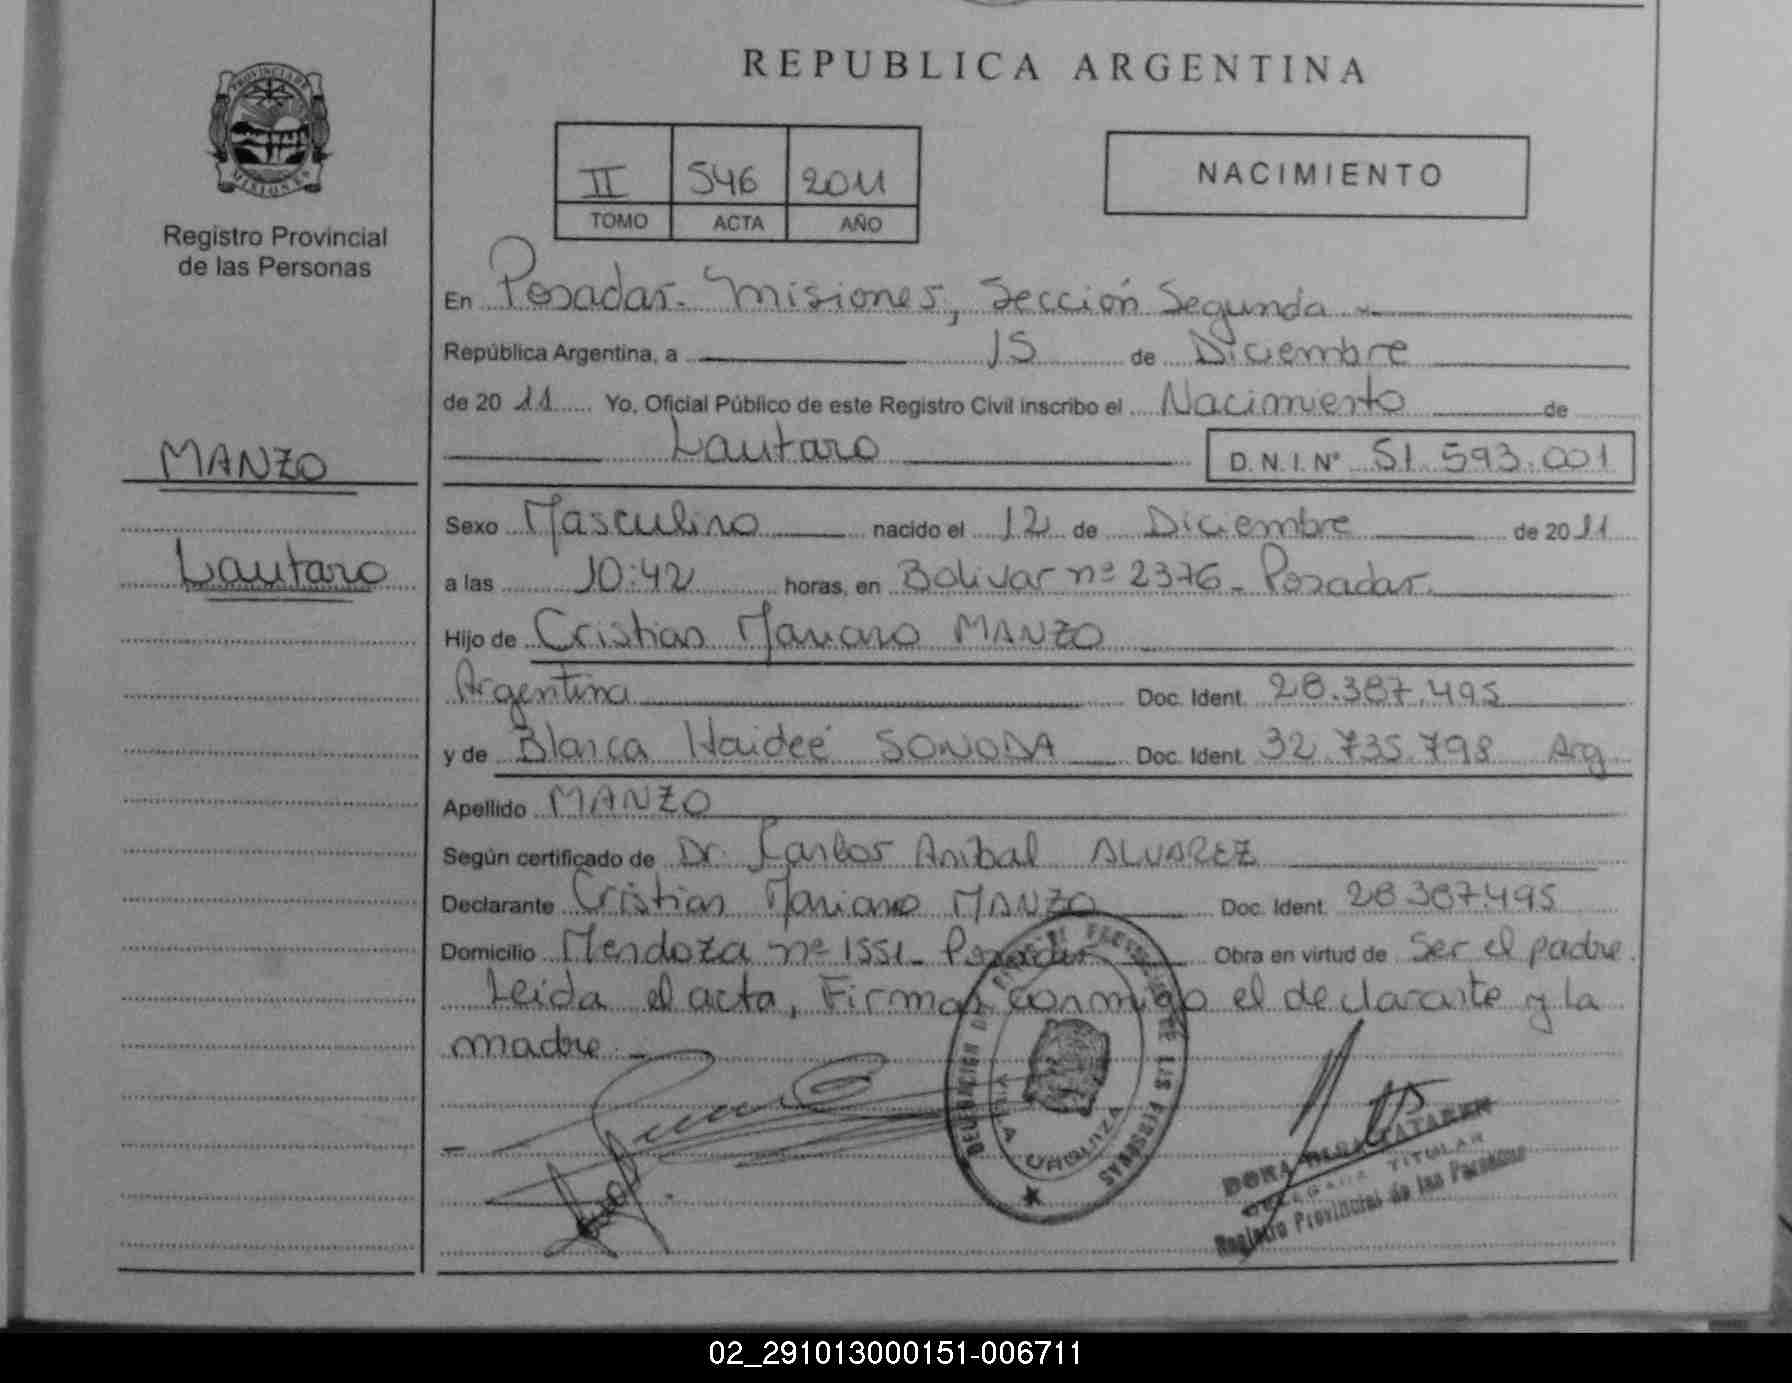 REPUBLICA ARGENTINA
PROVINCIA DE MISIONES
Registro Provincial
de las Personas
II 546 2011
TOMO ACTA AÑO
NACIMIENTO
En Posadas. Misiones, Sección Segunda
República Argentina, a 15 de Diciembre
de 2011 Yo, Oficial Público de este Registro Civil inscribo el Nacimiento de
Lautaro D.N.I. Nº 51.593.001
MANZO
Lautaro
Sexo Masculino nacido el 12 de Diciembre de 2011
a las 10:42 horas, en Bolivar nº 2376 - Posadas.
Hijo de Cristian Mariano MANZO
Argentina Doc. Ident. 28.387.495
y de Blanca Haideé SONODA Doc. Ident. 32.735.798 Arg
Apellido MANZO
Según certificado de Dr. Carlos Anibal ALVAREZ
Declarante Cristian Mariano MANZO Doc. Ident. 28.387.495
Domicilio Mendoza nº 1551 - Posadas Obra en virtud de Ser el padre.
Leida el acta, Firman conmigo el declarante y la
madre.
DELEGACION DEL REG. PROVINCIAL DE LAS PERSONAS
VILLA URQUIZA
DORA
DELEGADA TITULAR
Registro Provincial de las Personas
02_291013000151-006711